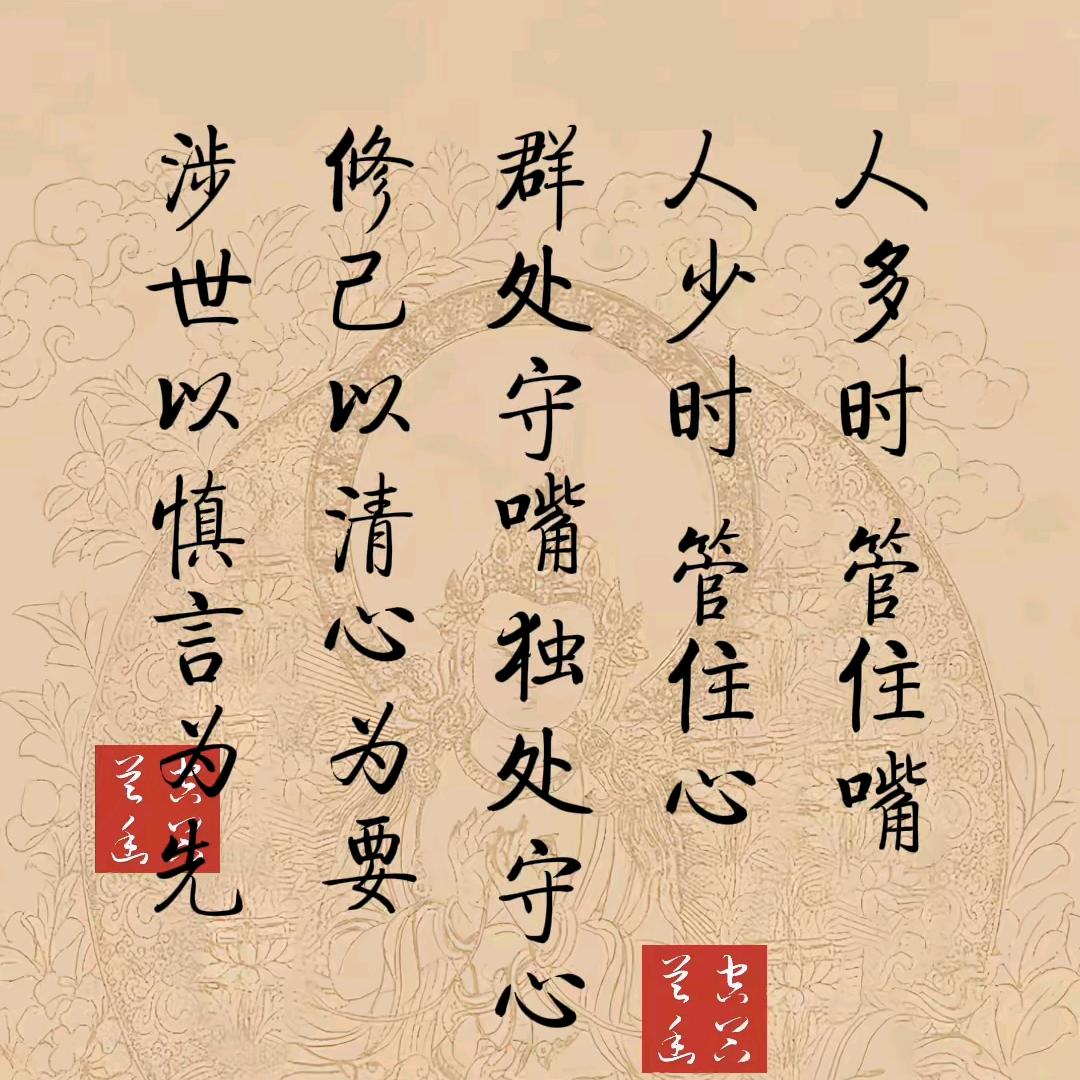 人多时 管住嘴
人少时 管住心
群处守嘴独处守心
修己以清心为要
涉世以慎言为先